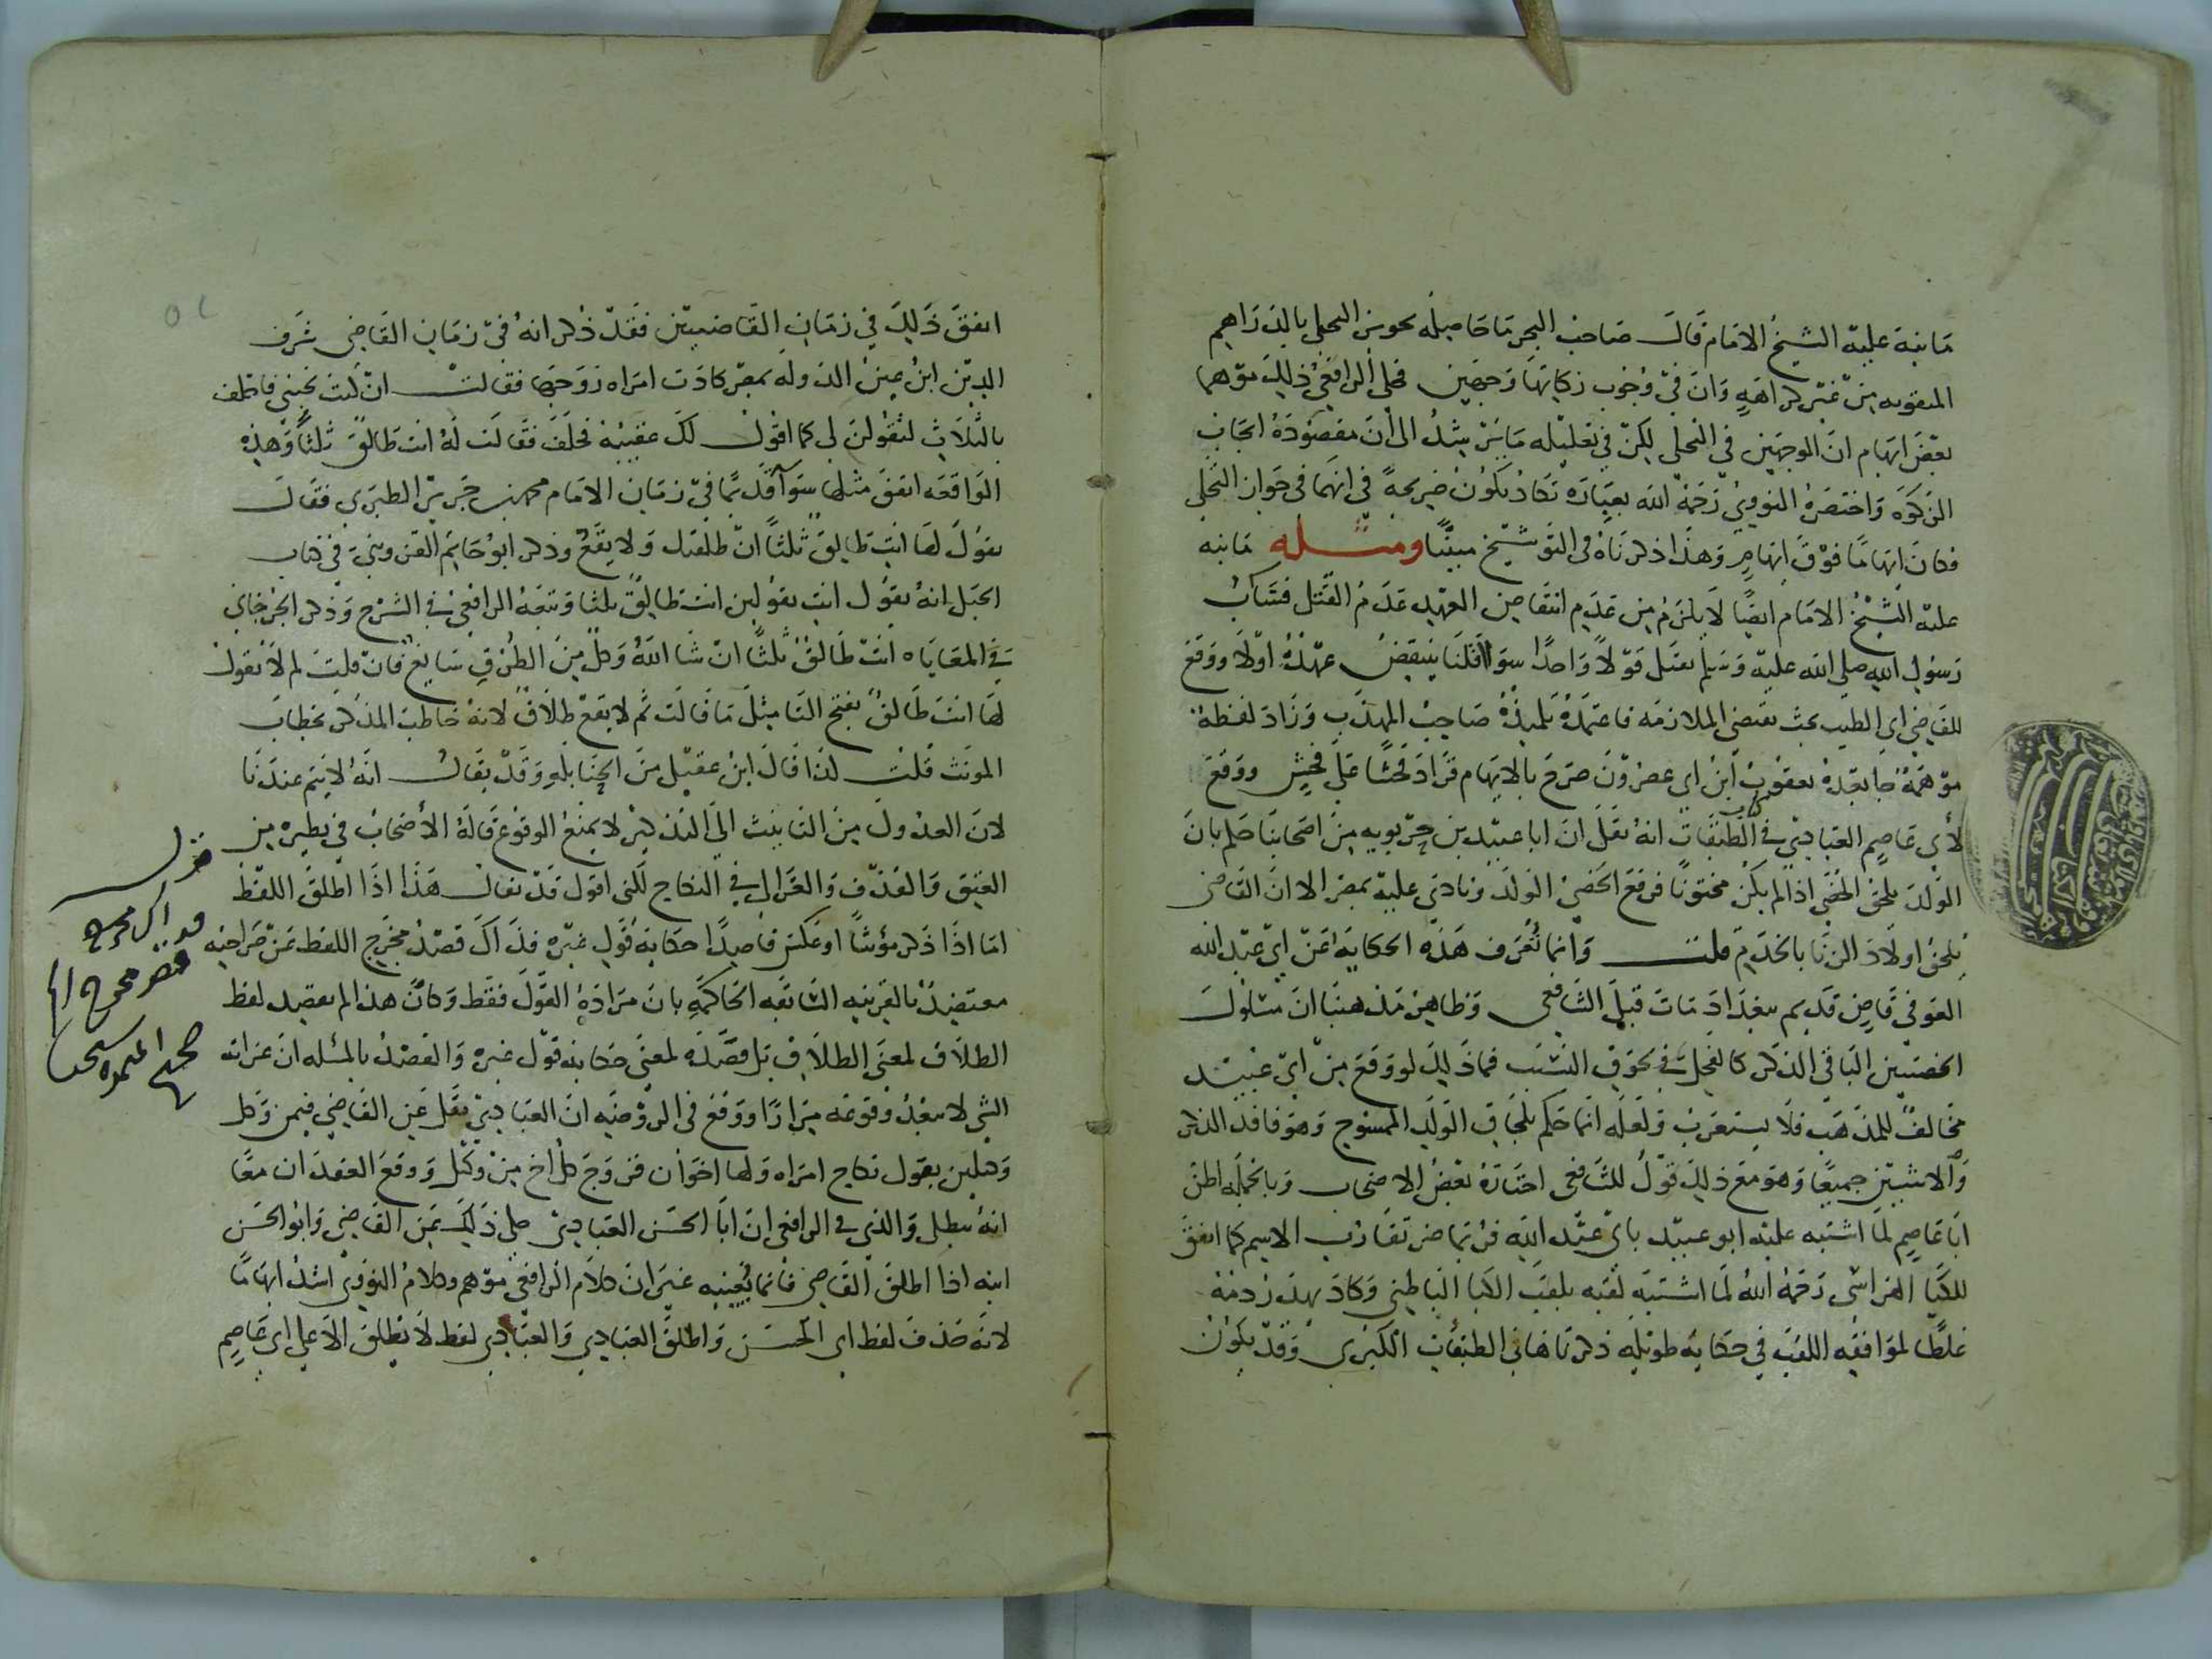 ما نبه عليه الشيخ الامام قال صاحب البحر ما حاصله يجوز التحلي بالدراهم
المثقوبه من غير كراهه وان في وجوب زكاتها وجهين فحكي الرافعي ذلك موهما
بعض ايهام ان الوجهين في التحلي لكن في تعليله ما يرشد الى ان مقصوده ايجاب
الزكوه واختصره النووي رحمه الله بعباره تكاد تكون صريحة في انهما في جواز التحلي
فكان ايهاما فوق ايهام وهذا ذكرناه في التوشيخ مبينا ومثله ما نبه
عليه الشيخ الامام ايضا لا يلزم من عدم انتقاض العهد عدم القتل فساب
رسول الله صلى الله عليه وسلم يقتل قولا واحدا سوا قلنا ينتقض عهده اولا ووقع
للقاضي ابي الطيب بحث يقتضي الملازمه فاعتمده تلميذه صاحب المهذب وزاد لفظة
موهمة جا بعده يعقوب ابن ابي عصرون صرح بالايهام فزاد فحشا على فحش ووقع
لأبي عاصم العبادي في كتاب الطبقات انه نقل ان ابا عبيد بن حربويه من اصحابنا حكم بان
الولد يلحق الخصي اذا لم يكن مختونا فرفع الخصي الولد ونادى عليه بمصر الا ان القاضي
يلحق اولاد الزنا بالخدم قلت وانما تعرف هذه الحكاية عن ابي عبد الله
العوفي قاض قديم ببغداد مات قبل الشافعي وظاهر مذهبنا ان مسلول
الخصيتين الباقي الذكر كالفحل في لحوق النسب فما ذلك لو وقع من ابي عبيد
مخالف للمذهب فلا يستغرب ولعله انما حكم بلحاق الولد الممسوح وهو فاقد الذكر
والانثيين جميعا وهو مع ذلك قول للشافعي اختاره بعض الاصحاب وبالجمله اظن
ابا عاصم لما اشتبه عليه ابو عبيد بابي عبد الله فربما ضر تقارب الاسم كما اتفق
للكيا الهراسي رحمه الله لما اشتبه لقبه بلقب الكيا الباطني وكاد يهدر دمه
غلطا لموافقه اللقب في حكايه طويله ذكرناها في الطبقات الكبرى وقد يكون
اتفق ذلك في زمان القاضيين فقد ذكر انه في زمان القاضي شرف
الدين ابن عين الدوله بمصر كادت امراه زوجها فقالت ان كنت تحبني فاحلف
بالثلاث لتقولن لي كما اقول لك عقيبه فحلف فقالت له انت طالق ثلثا وهذه
الواقعه اتفق مثلها سوآ قديما في زمان الامام محمد بن جرير الطبري فقال
يقول لها انت طالق ثلثا ان طلقتك ولا يقع وذكر ابو حاتم القزويني في كتاب
الحيل انه يقول انت تقولين انت طالق ثلثا وتبعه الرافعي في الشرح وذكر الجرجاني
في المعاياه انت طالق ثلثا ان شا الله وكل من الطرق سايغ فان قلت لم لا يقول
لها انت طالق بفتح التا مثل ما قالت ثم لا يقع طلاق لانه خاطب المذكر بخطاب
المونث قلت لذا قال ابن عقيل من الحنابله وقد يقال انه لا يتم عندنا
لان العدول من التانيث الى التذكير لا يمنع الوقوع قاله الأصحاب في نظيره من
العتق والقذف والغزالي في النكاح لكني اقول قد يقال هذا اذا اطلق اللفظ
اما اذا ذكر مؤنثا او عكس قاصدا حكاية قول غيره فذاك قصد مخرج اللفظ عن صراحته
معتضد بالقرينه السابقه الحاكمه بان مراده القول فقط وكان هذا لم يقصد لفظ
الطلاق لمعنى الطلاق بل قصده لمعنى حكاية قول غيره والقصد بالمسله ان غرابه
الشي لا يبعد وقوعه مرارا ووقع في الروضه ان العبادي نقل عن القاضي فيمن وكل
وكيلين بقبول نكاح امراه ولها اخوان فزوج كل اخ من وكيل ووقع العقدان معا
انه يبطل والذي في الرافعي ان ابا الحسن العبادي حكى ذلك عن القاضي وابو الحسن
ابنه اذا اطلق القاضي فانما يعنيه غير ان كلام الرافعي موهم وكلام النووي اشد ايهاما
لانه حذف لفظ ابي الحسن واطلق العبادي والعبادي لفظ لا يطلق الا على ابي عاصم